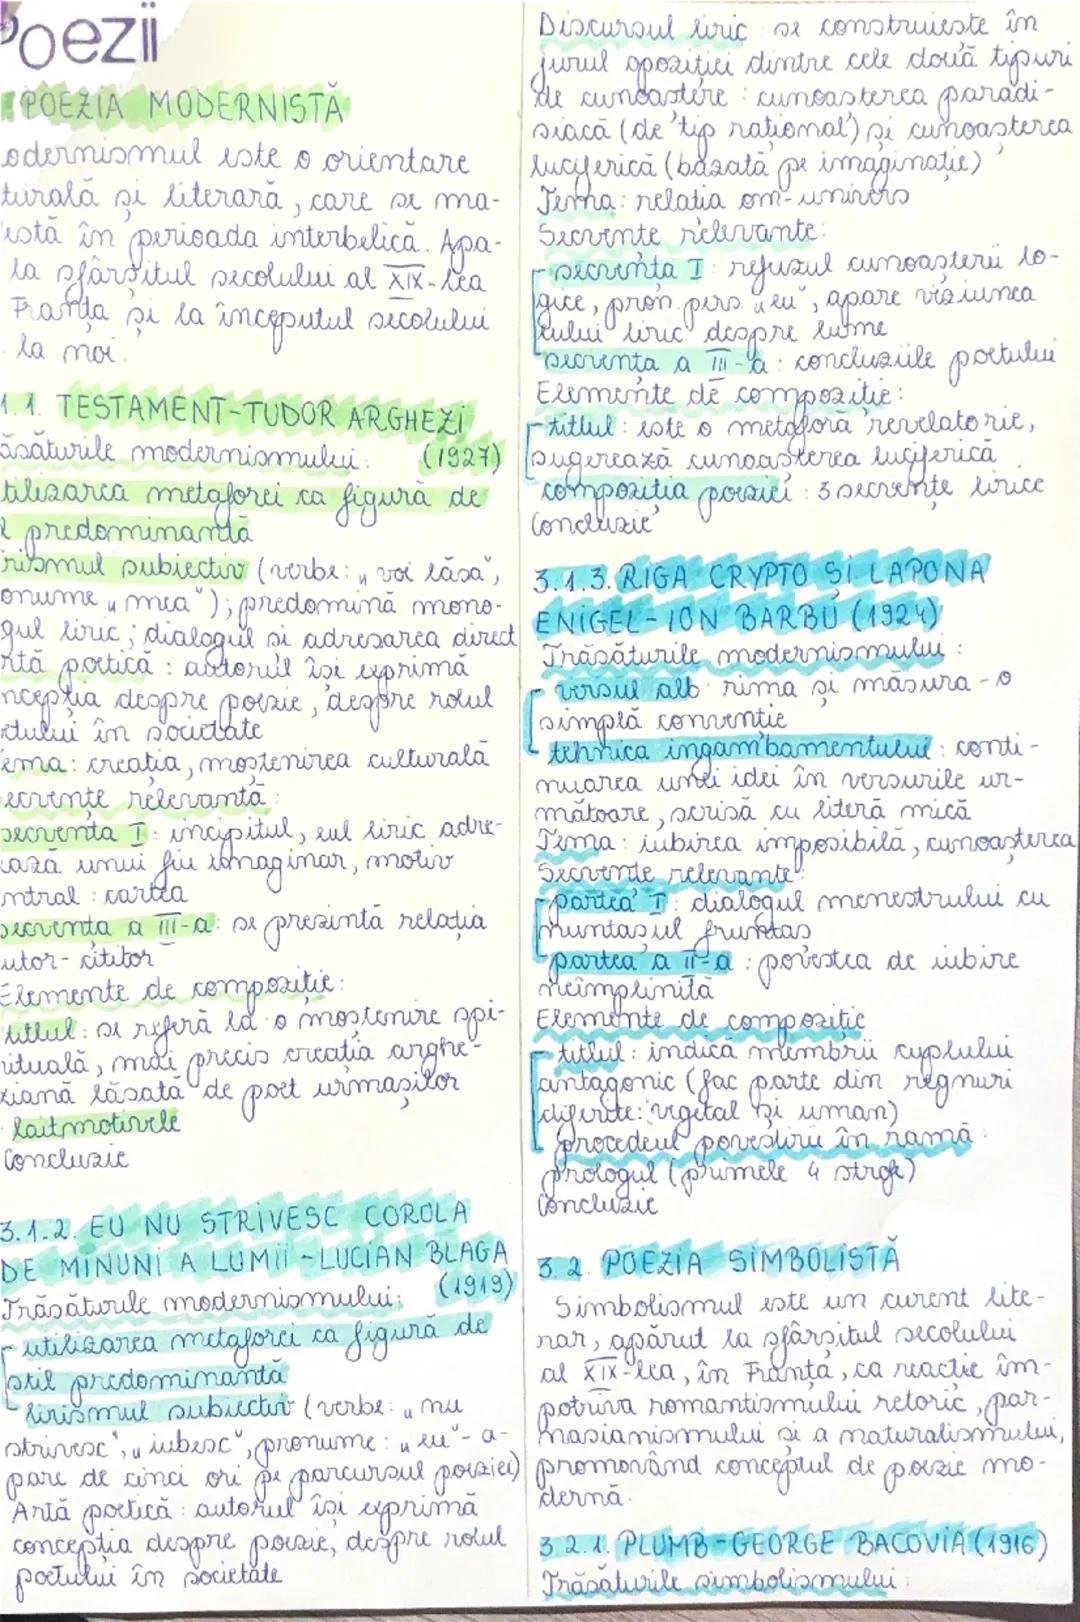 Poezii
POEZIA MODERNISTĂ
odernismul este o orientare
turală și literară, care se ma-
estă în perioada interbelică. Apa-
la sfârșitul secolului al XIX-lea
Franța și la începutul secolului
la noi.
1.1. TESTAMENT-TUDOR ARGHEZI
ăsăturile modernismului: (1927)
tilizarea metaforei ca figură de
l predominantă
rismul subiectiv (verbe: „voi lăsa",
onume „mea"); predomină mono-
gul liric; dialogul și adresarea direct
rtă poetică: autorul își exprimă
ncepția despre poezie, despre rolul
etului în societate
ema: creația, moștenirea culturală
ecvențe relevantă:
secvența I: incipitul, eul liric adre-
ează unui fiu imaginar, motiv
ntral: cartea
secvența a III-a: se prezintă relația
utor-cititor
Elemente de compoziție:
titlul: se referă la o moștenire spi-
rituală, mai precis creația arghe-
ziană lăsată de poet urmașilor
laitmotivele
Concluzie
3.1.2. EU NU STRIVESC COROLA
DE MINUNI A LUMII-LUCIAN BLAGA
Trăsăturile modernismului: (1919)
utilizarea metaforei ca figură de
stil predominantă
lirismul subiectiv (verbe: „nu
strivesc", „iubesc", pronume: „eu"- a-
pare de cinci ori pe parcursul poeziei)
Artă poetică: autorul își exprimă
concepția despre poezie, despre rolul
poetului în societate
Discursul liric se construiește în
jurul opoziției dintre cele două tipuri
de cunoaștere: cunoașterea paradi-
siacă (de tip rațional) și cunoașterea
luciferică (bazată pe imaginație)
Tema: relația om-univers
Secvențe relevante:
secvența I: refuzul cunoașterii lo-
gice, pron. pers. „eu", apare viziunea
eului liric despre lume
secvența a III-a: concluziile poetului
Elemente de compoziție:
titlul: este o metaforă revelatorie,
sugerează cunoașterea luciferică
compoziția poeziei: 3 secvențe lirice
Concluzie
3.1.3. RIGA CRYPTO ȘI LAPONA
ENIGEL-ION BARBU (1924)
Trăsăturile modernismului:
versul alb: rima și măsura - o
simplă convenție
tehnica ingambamentului: conti-
nuarea unei idei în versurile ur-
mătoare, scrisă cu literă mică
Tema: iubirea imposibilă, cunoașterea
Secvențe relevante:
partea I: dialogul menestrului cu
nuntașul fruntaș
partea a II-a: povestea de iubire
neîmplinită
Elemente de compoziție
titlul: indică membrii cuplului
antagonic (fac parte din regnuri
diferite: vegetal și uman)
procedeul povestirii în ramă:
prologul (primele 4 strofe)
Concluzie
3.2. POEZIA SIMBOLISTĂ
Simbolismul este un curent lite-
rar, apărut la sfârșitul secolului
al XIX-lea, în Franța, ca reacție îm-
potriva romantismului retoric, par-
nasianismului și a naturalismului,
promovând conceptul de poezie mo-
dernă.
3.2.1. PLUMB-GEORGE BACOVIA (1916)
Trăsăturile simbolismului: